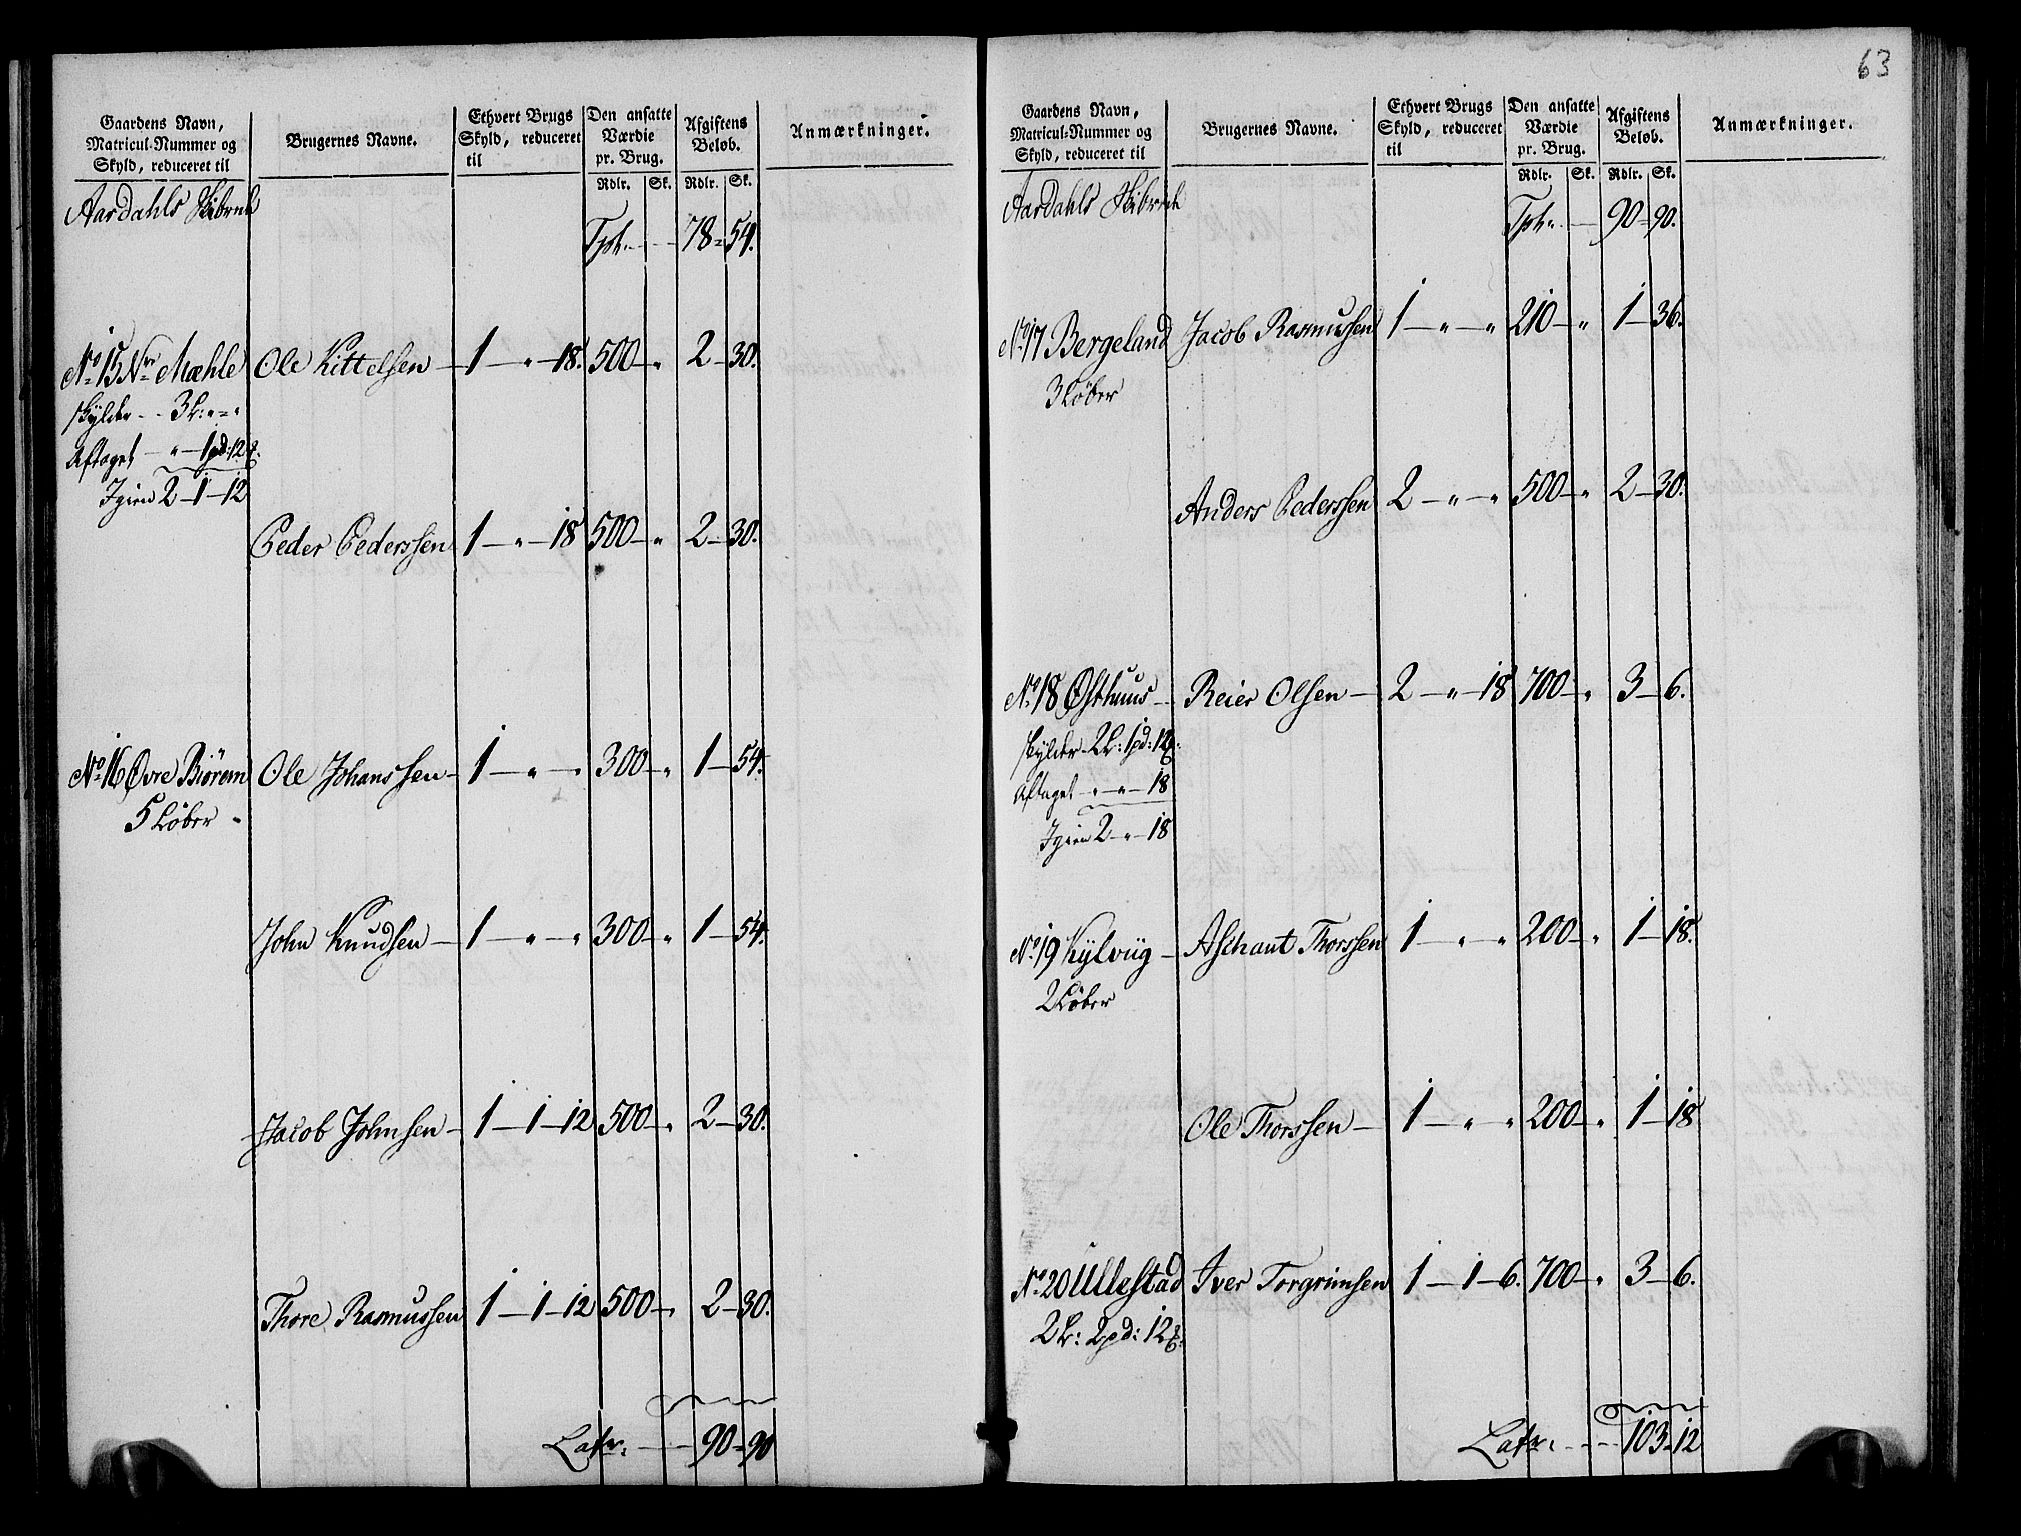 Gaardens Navn, Matricul-Nummer og Skyld, reduceret til | Brugernes Navne. | Ethvert Brugs Skyld, reduceret til | Den ansatte Værdie pr. Brug. Rdlr. Sk. | Afgiftens Beløb. Rdlr. Sk. | Anmærkninger.
Aardahls Skibrede
Tpt. 78 - 54.
No 15 Nre Mæhle Ole Kittelsen 1 - " - 18. 500 - " 2 - 30.
skylder - - 3 L: " - "
Aftaget - " - 1 pd: 12
Igien 2 - 1 - 12
Peder Pederssen 1 - " - 18 500 - " 2 - 30.
No 16 Øvre Biörem Ole Johanssen 1 - " - " 300 - " 1 - 54.
5 Løber
John Knudsen 1 - " - " 300 - " 1 - 54.
Jacob Johnsen 1 - 1 - 12 500 - " 2 - 30.
Thore Rasmussen 1 - 1 - 12 500 - " 2 - 30.
Latr. 90 - 90
63
Gaardens Navn, Matricul-Nummer og Skyld, reduceret til | Brugernes Navne. | Ethvert Brugs Skyld, reduceret til | Den ansatte Værdie pr. Brug. Rdlr. Sk. | Afgiftens Beløb. Rdlr. Sk. | Anmærkninger.
Aardahls Skibrede
Tpt. 90 - 90.
No 17 Bergeland Jacob Rasmussen 1 - " - " 210 - " 1 - 36.
3 Løber
Anders Pederssen 2 - " - " 500 - " 2 - 30.
No 18 Østhuus Reier Olsen 2 - " - 18 700 - " 3 - 6.
skylder - 2 L: 1 pd: 12
Aftaget - " - " - 18
Igien 2 - " - 18
No 19 Kylviig Aschaut Thorssen 1 - " - " 200 - " 1 - 18.
2 Løber
Ole Thorssen 1 - " - " 200 - " 1 - 18
No 20 Ullestad Iver Torgrimsen 1 - 1 - 6. 700 - " 3 - 6.
2 L: 2 pd: 12
Latr. 103 - 12